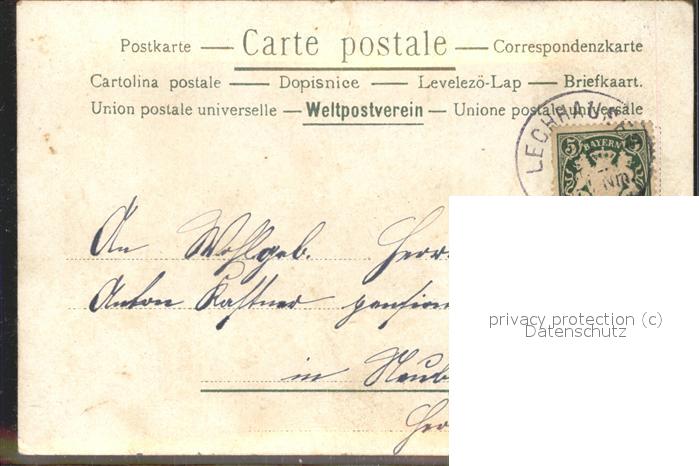 Postkarte — Carte postale — Correspondenzkarte
Cartolina postale — Dopisnice — Levelező-Lap — Briefkaart.
Union postale universelle — Weltpostverein — Unione postale universale
LECHHAU
5 BAYERN 5
An Wohlgeb. Herrn
Anton Kastner pension
in Neub
Her
privacy protection (c)
Datenschutz